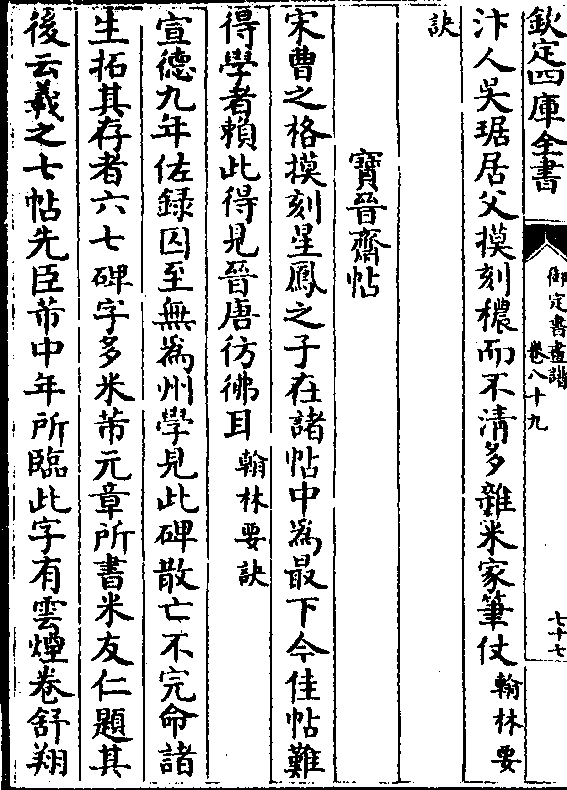 欽定四庫全書
御定書畫譜
卷八十九
七十七
汴人吳琚居父摸刻穠而不清多雜米家筆仗翰林要
訣
寶晉齋帖
宋曹之格摸刻星鳳之子在諸帖中爲最下今佳帖難
得學者賴此得見晉唐彷彿耳翰林要訣
宣德九年佐録囚至無爲州學見此碑散亡不完命諸
生拓其存者六七碑字多米芾元章所書米友仁題其
後云羲之七帖先臣芾中年所臨此字有雲煙卷舒翔